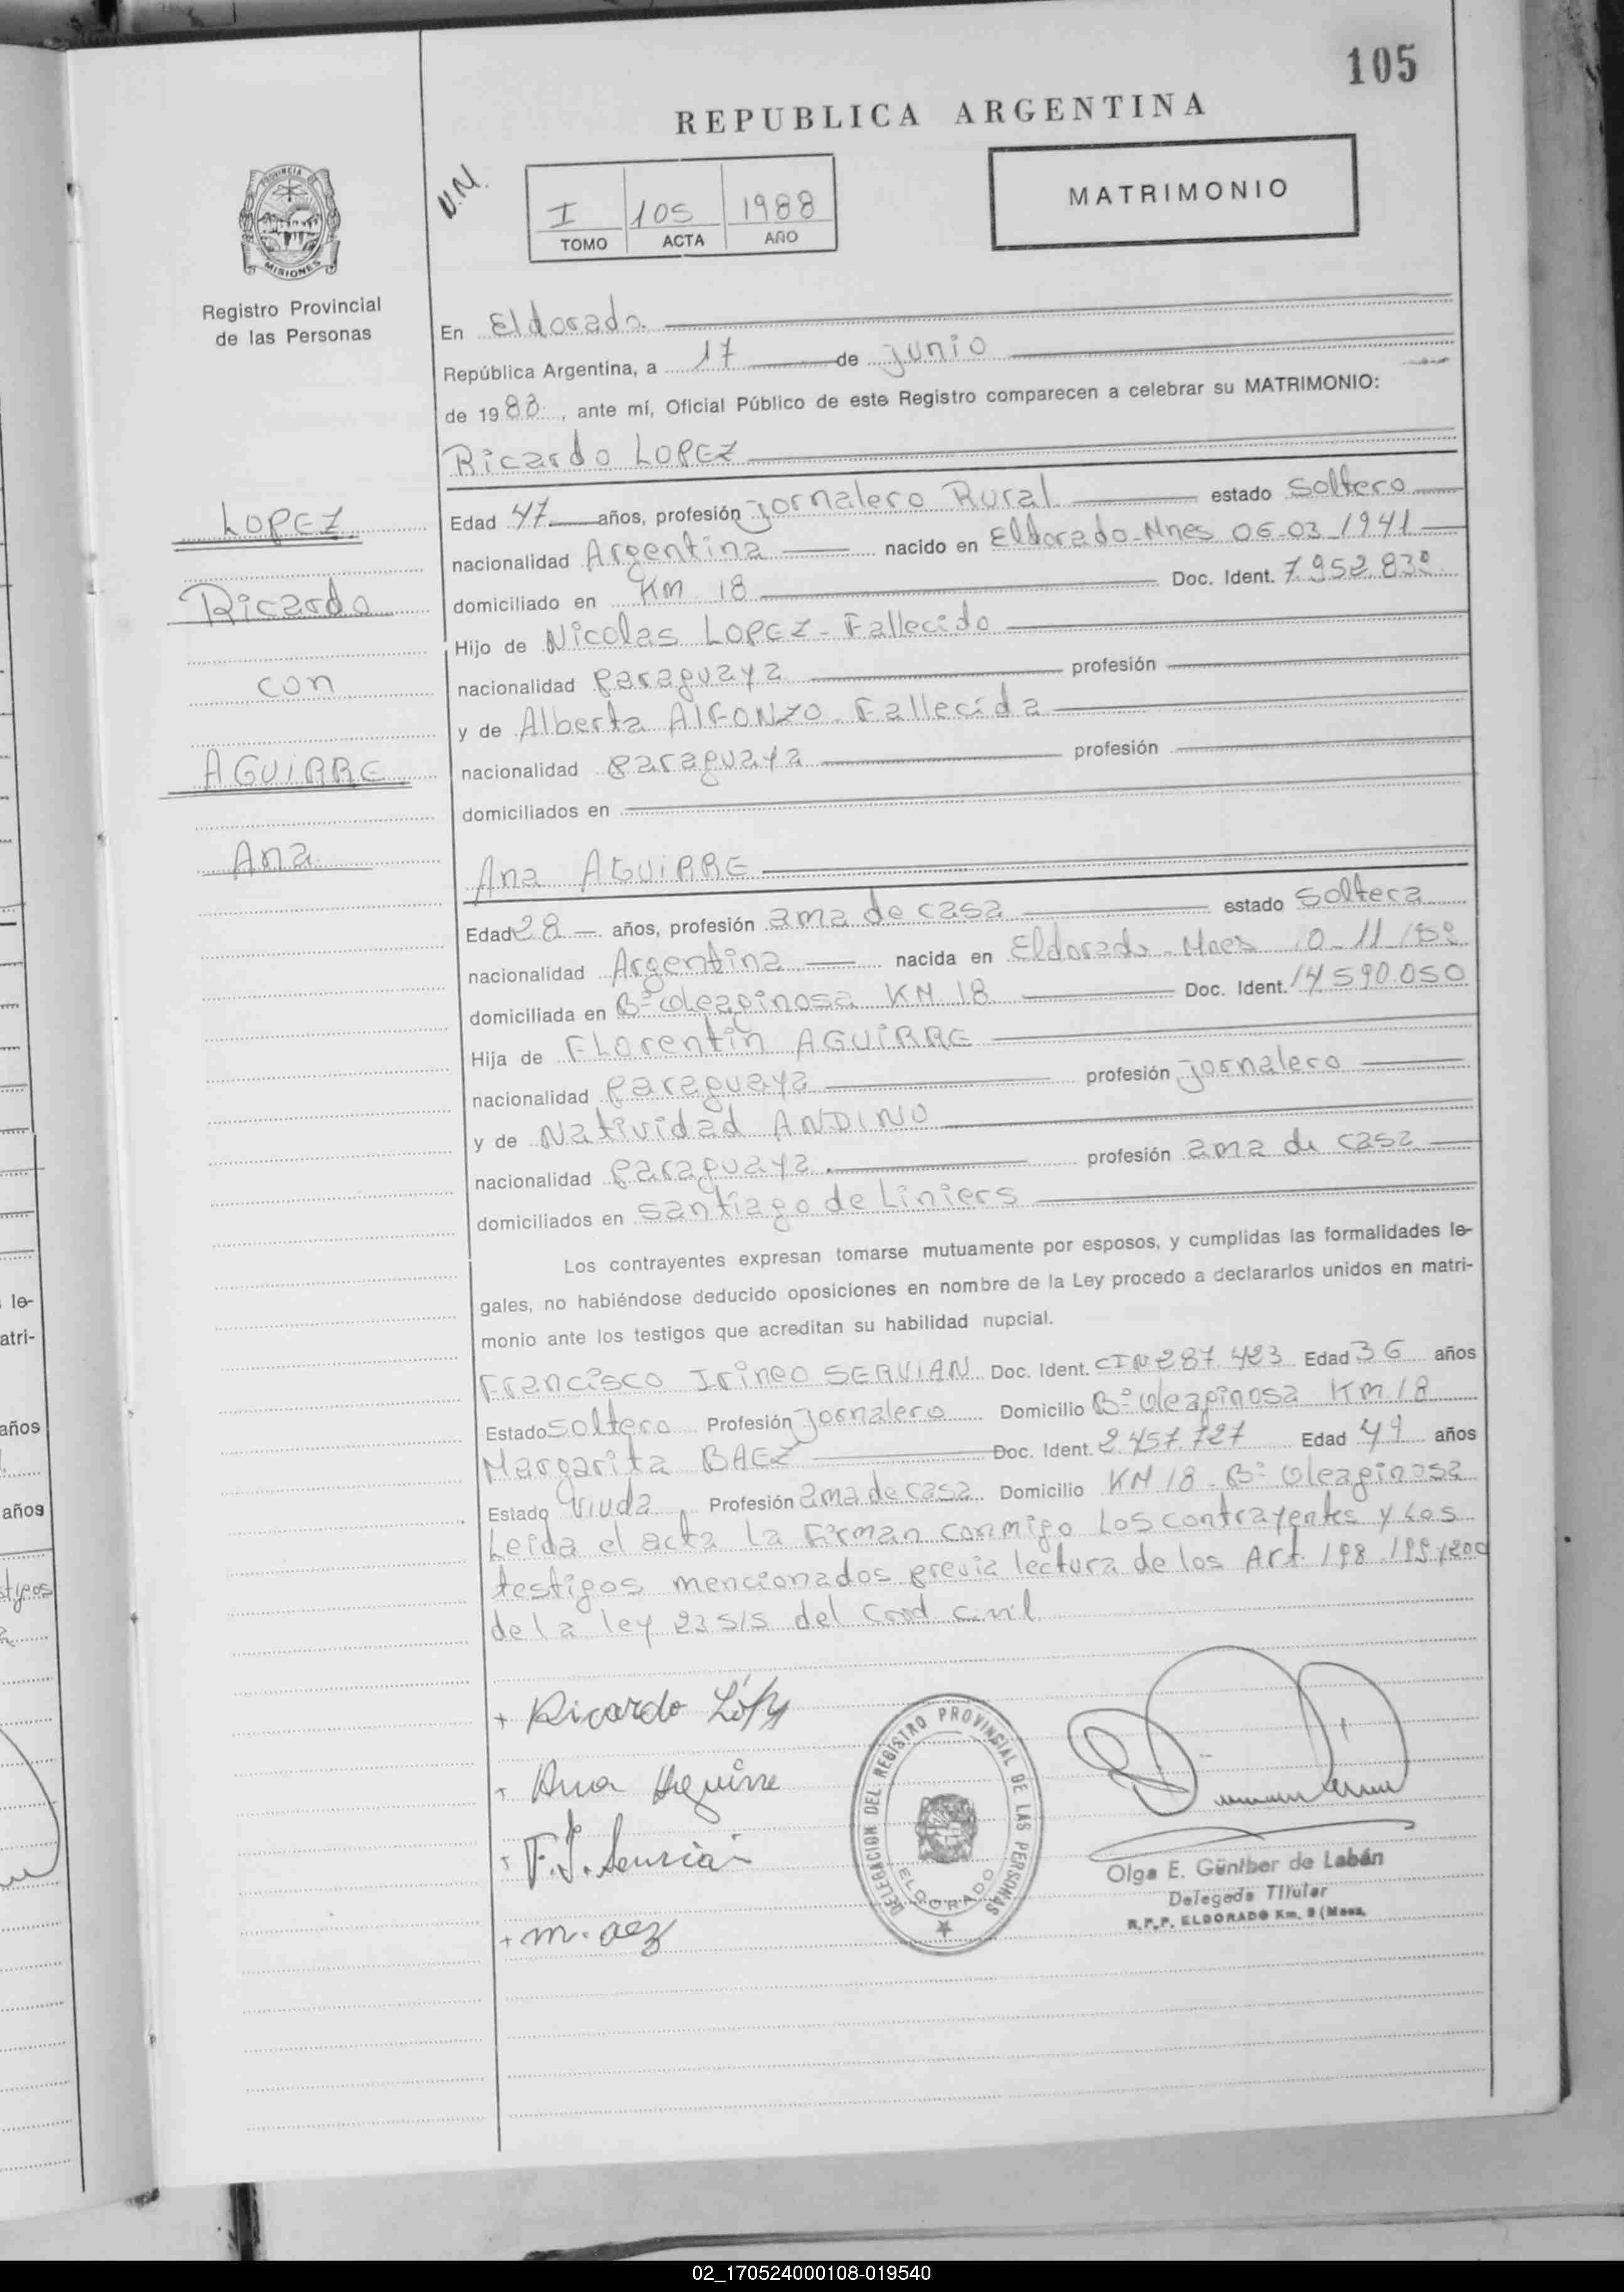 105
REPUBLICA ARGENTINA
V.N.
I 105 1988
TOMO ACTA AÑO
MATRIMONIO
PROVINCIA DE
MISIONES
Registro Provincial
de las Personas
En Eldorado
República Argentina, a 17 de junio
de 1988, ante mí, Oficial Público de este Registro comparecen a celebrar su MATRIMONIO:
Ricardo LOPEZ
LOPEZ
Ricardo
con
AGUIRRE
Ana
Edad 47 años, profesión jornalero Rural estado soltero
nacionalidad Argentina nacido en Eldorado-Mnes 06-03-1941
domiciliado en Km 18 Doc. Ident. 7.952.830
Hijo de Nicolas LOPEZ - Fallecido
nacionalidad paraguaya profesión
y de Alberta AlFONZO - Fallecida
nacionalidad paraguaya profesión
domiciliados en
Ana AGUIRRE
Edad 28 años, profesión ama de casa estado soltera
nacionalidad Argentina nacida en Eldorado - Mnes 10-11/59
domiciliada en Bº Oleaginosa KM 18 Doc. Ident. 14.590.050
Hija de FLorentin AGUIRRE
nacionalidad paraguaya profesión jornalero
y de Natividad ANDINO
nacionalidad paraguaya. profesión ama de casa
domiciliados en santiago de Liniers
Los contrayentes expresan tomarse mutuamente por esposos, y cumplidas las formalidades le-
gales, no habiéndose deducido oposiciones en nombre de la Ley procedo a declararlos unidos en matri-
monio ante los testigos que acreditan su habilidad nupcial.
Francisco Irineo SERVIAN Doc. Ident. CIN 287.423 Edad 36 años
Estado soltero Profesión jornalero Domicilio Bº Oleaginosa Km 18
Margarita BAEZ Doc. Ident. 2.457.727 Edad 49 años
Estado Viuda, Profesión ama de casa Domicilio KM 18 - Bº Oleaginosa
Leida el acta la Firman conmigo Los contrayentes y Los
testigos mencionados previa lectura de los Art. 198 199 y 200
de la ley 23515 del Cod civil
+ Ricardo López
+ Ana Aguirre
+ F.I. Servián
+ m. aez
DELEGACION DEL REGISTRO PROVINCIAL DE LAS PERSONAS
ELDORADO
Olga E. Günther de Labán
Delegada Titular
R.P.P. ELDORADO Km. 9 (Mnes.
le-
atri-
años
años
stigos
02_170524000108-019540